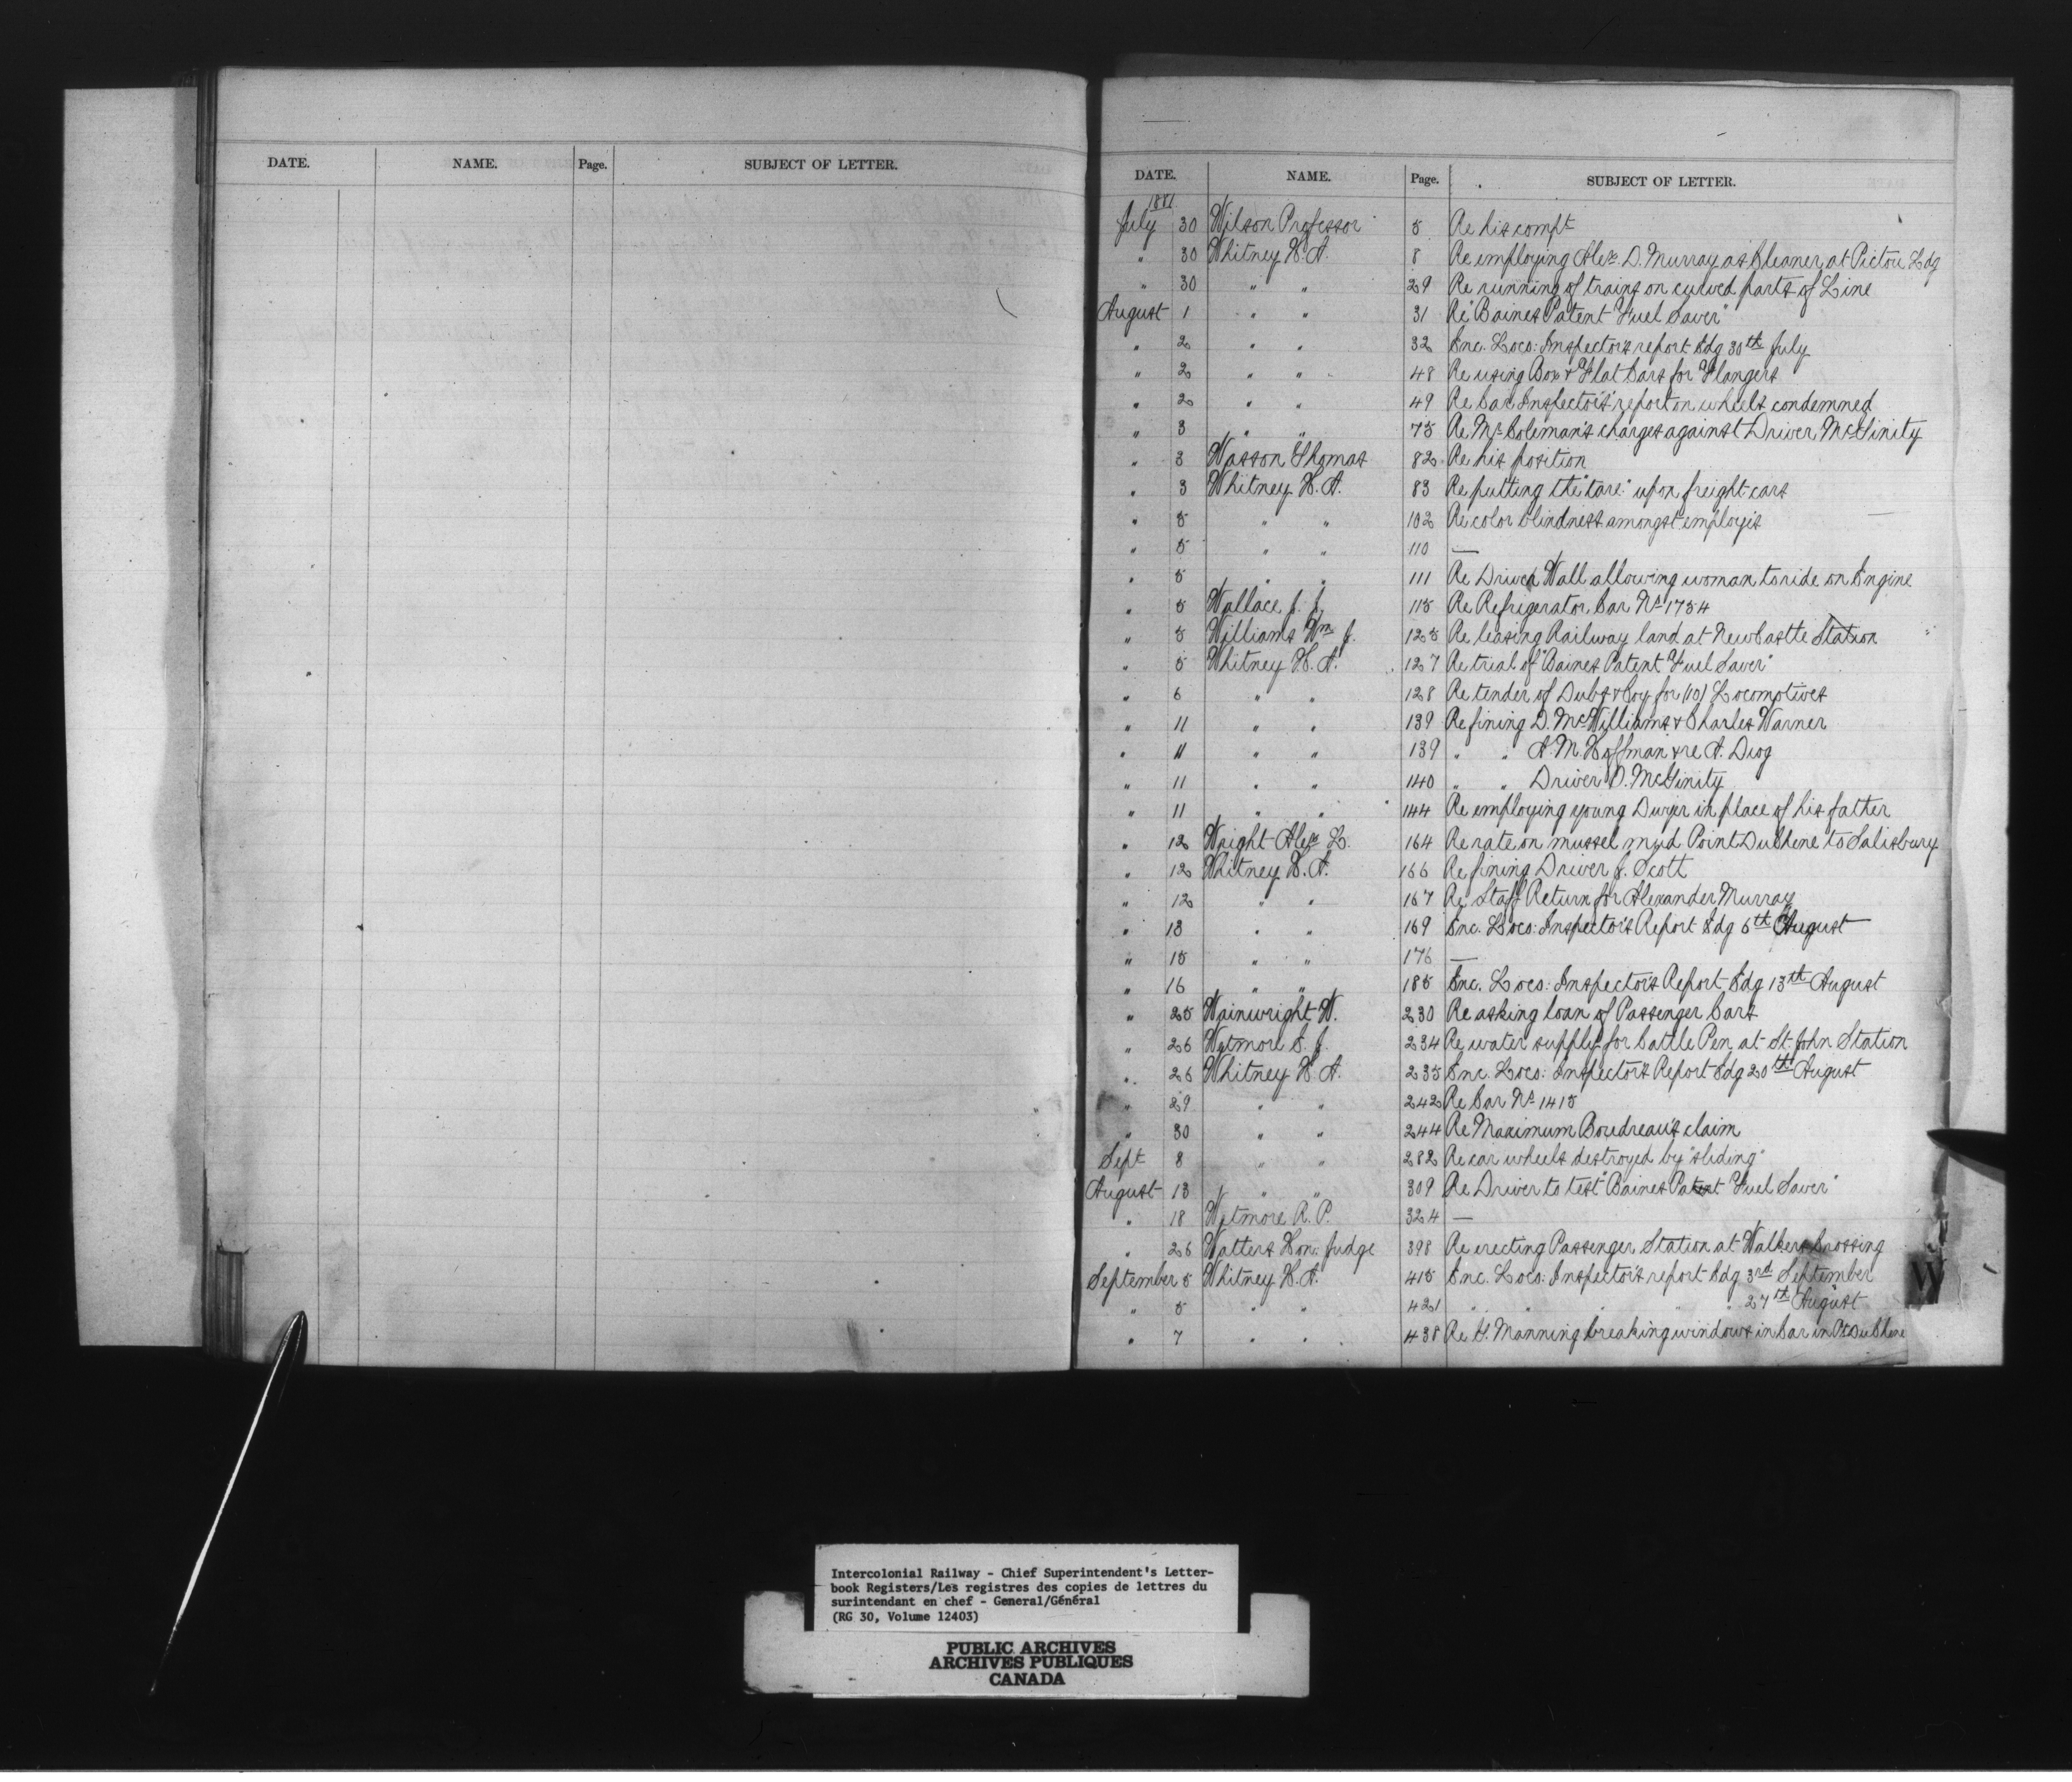 DATE. NAME. Page. SUBJECT OF LETTER.
DATE. NAME. Page. SUBJECT OF LETTER.
1881
July 30 Wilson Professor 5 Re his compt
" 30 Whitney H. A. 8 Re employing Alex. D. Murray as Cleaner at Pictou Ldg
" 30 " " 29 Re running of trains on curved parts of Line
August 1 " " 31 Re "Baines Patent Fuel Saver"
" 2 " " 32 Enc. Loco: Inspector's report Edg 30th July
" 2 " " 48 Re using Box & Flat Cars for Flangers
" 2 " " 49 Re Car Inspector's report on wheels condemned
" 3 " " 75 Re Mr Coleman's charges against Driver McGinity
" 3 Wasson Thomas 82 Re his position
" 3 Whitney H. A. 83 Re putting the "tare" upon freight cars
" 5 " " 102 Re color blindness amongst employés
" 5 " " 110 —
" 5 " " 111 Re Driver Wall allowing woman to ride on Engine
" 5 Wallace J. J. 115 Re Refrigerator Car No 1754
" 5 Williams Wm J. 125 Re leasing Railway land at NewCastle Station
" 5 Whitney H. A. 127 Re trial of "Baines Patent Fuel Saver"
" 6 " " 128 Re tender of Dubs & Coy for (10) Locomotives
" 11 " " 139 Re fining D. McWilliams & Charles Warner
" 11 " " 139 " " A. M. Hoffman & re A.
" 11 " " 140 " " Driver D. McGinity
" 11 " " 144 Re employing young Dwyer in place of his father
" 12 Wright Alex L. 164 Re rate on mussel mud Point DuChene to Salisbury
" 12 Whitney H. A. 166 Re fining Driver J. Scott
" 12 " " 167 Re Staff Return for Alexander Murray
" 13 " " 169 Enc. Loco: Inspector's Report Edg 6th August
" 15 " " 176 —
" 16 " " 185 Enc. Loco: Inspector's Report Edg 13th August
" 25 Wainwright W. 230 Re asking loan of Passenger Cars
" 26 Wetmore S. J. 234 Re water supply for Cattle Pen at St. John Station
" 26 Whitney H. A. 235 Enc. Loco: Inspector's Report Edg 20th August
" 29 " " 242 Re Car No 1415
" 30 " " 244 Re Maximum Boudreau's claim
Sept 8 " " 282 Re car wheels destroyed by "sliding"
August 13 " " 309 Re Driver to test "Baines Patent Fuel Saver"
" 18 Wetmore R. P. 324 —
" 26 Watters Hon. Judge 398 Re erecting Passenger Station at Walkers Crossing
September 5 Whitney H. A. 415 Enc. Loco: Inspector's report Edg 3rd September
" 5 " " 421 " " " " " 27th August
" 7 " " 438 Re H. Manning breaking windows in Car in Pt DuChene
W
Intercolonial Railway - Chief Superintendent's Letter-
book Registers/Les registres des copies de lettres du
surintendant en chef - General/Général
(RG 30, Volume 12403)
PUBLIC ARCHIVES
ARCHIVES PUBLIQUES
CANADA